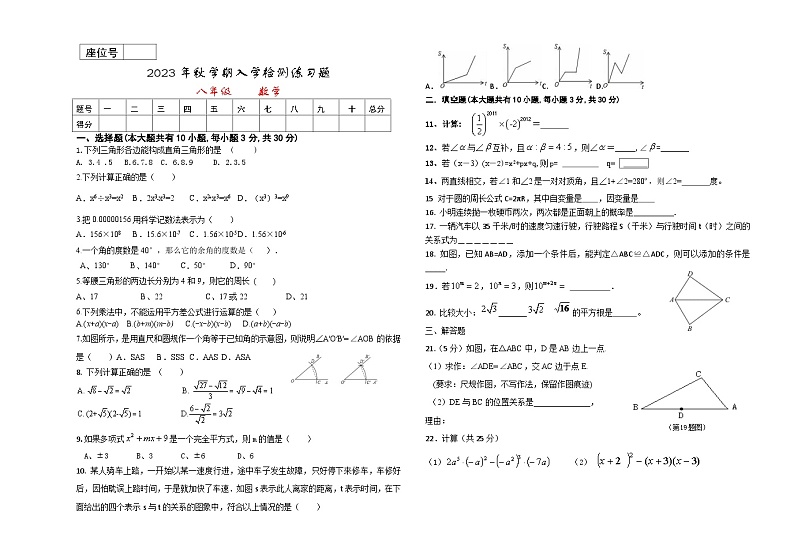 座位号
2023年秋学期入学检测练习题
八年级 数学
题号 一 二 三 四 五 六 七 八 九 十 总分
得分
一、选择题(本大题共有10小题,每小题3分,共30分)
1.下列三角形各边能构成直角三角形的是 ( )
A. 3.4 .5 B.6.7.8 C. 6.8.9 D. 2.3.5
2.下列计算正确的是( )
3.把0.00000156用科学记数法表示为( )
A．156×10⁸ B．15.6×10⁻⁷ C．1.56×10⁻⁵ D．1.56×10⁻⁶
4.一个角的度数是40°，那么它的余角的度数是( ).
A、130° B、140° C、50° D、90°
5.等腰三角形的两边长分别为4和9，则它的周长 ( )
A、17 B、22 C、17或22 D、21
6.下列乘法中，不能运用平方差公式进行运算的是( )
A.(x+a)(x−a) B.(b+m)(m−b) C.(−x−b)(x−b) D.(a+b)(−a−b)
7.如图所示，是用直尺和圆规作一个角等于已知角的示意图，则说明∠A′O′B′=∠AOB的依据
是( ) A．SAS B．SSS C．AAS D．ASA
8. 下列计算正确的是 ( )
A. √6−√2=√2 B. (√27−√12)/3=√9−√4=1
C. (2+√5)(2-√5)=1 D. (6−√2)/√2=3√2
9.如果多项式x²+mx+9是一个完全平方式，则m的值是( )
A、±3 B、3 C、±6 D、6
10. 某人骑车上路，一开始以某一速度行进，途中车子发生故障，只好停下来修车，车修好
后，因怕耽误上路时间，于是就加快了车速．如图s表示此人离家的距离，t表示时间，在下
面给出的四个表示s与t的关系的图象中，符合以上情况的是( )
S S S S
A. O t B. O t C. O t D. O t
二、填空题(本大题共有10小题,每小题3分,共30分)
11、计算：(1/2)²⁰¹¹×(-2)²⁰¹²=______
12、若∠α与∠β互补，且α:β=4:5，则∠α=____,∠β=______
13、若(x−3)(x−2)=x²+px+q,则p= ______ q= ______
14、两直线相交，若∠1和∠2是一对对顶角，且∠1+∠2=280°，则∠2=______度。
15 对于圆的周长公式C=2πR，其中自变量是____，因变量是____
16. 小明连续抛一枚硬币两次，两次都是正面朝上的概率是________.
17. 一辆汽车以35千米/时的速度匀速行驶，行驶路程S（千米）与行驶时间t（时）之间的
关系式为_______
18. 如图，已知AB=AD，添加一个条件后，能判定△ABC≌△ADC，则可以添加的条件是
_____.
D
A C
B
19．若10ᵐ=2，10ⁿ=3，则10ᵐ⁺²ⁿ= ________ ．
20. 比较大小：2√3 ______ 3√2 √16的平方根是______。
三、解答题
21.(5分)如图，在△ABC中，D是AB边上一点.
(1)求作：∠ADE=∠ABC，交AC边于点E.
(要求：尺规作图，不写作法，保留作图痕迹)
(2)DE与BC的位置关系是____________，
理由：
C
B D A
(第19题图)
22. 计算（共25分）
(1) 2a⁵·(−a)²−(−a²)³·(−7a) (2) (x+2)²−(x+3)(x−3)